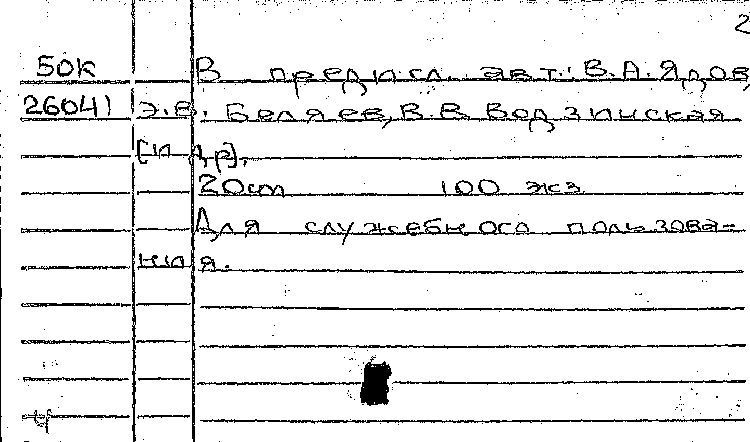 2
50к В предисл. авт.: В.А. Ядов,
26041 Э.В. Беляев, В.В. Водзинская
[и др].
20cm 100 экз
Для служебного пользова-
ния.